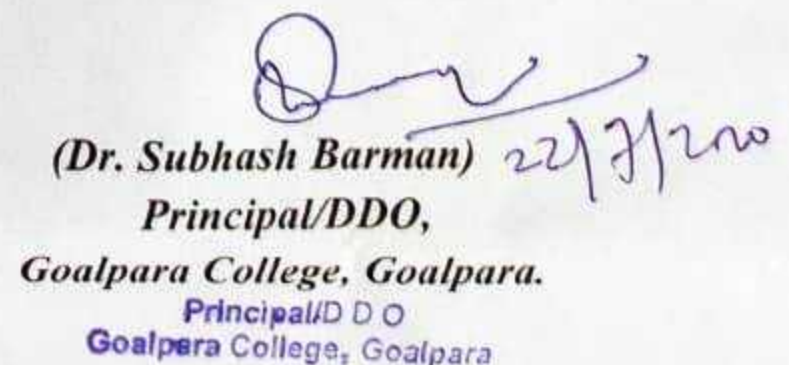 (Dr. Subhash Barman) 22/7/2020
Principal/DDO,
Goalpara College, Goalpara.
Principal/D D O
Goalpara College, Goalpara